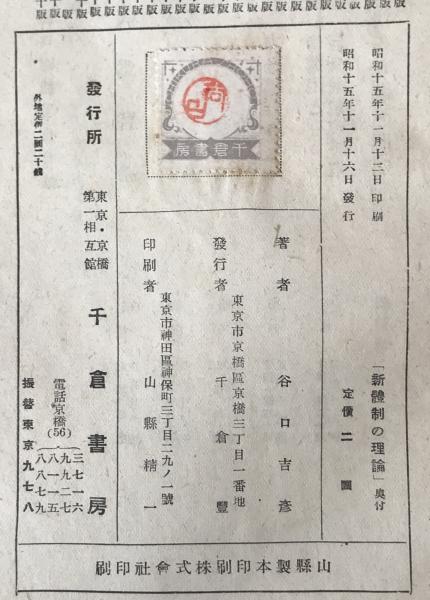 版版版版版版版版版版版版版版版
昭和十五年十一月十三日印刷
昭和十五年十一月十六日發行
「新體制の理論」奧付
定價二圓
千倉書房
著者　谷口吉彥
東京市京橋區京橋三丁目一番地
發行者　千倉豐
東京市神田區神保町三丁目二九ノ一號
印刷者　山縣精一
發行所
東京・京橋
第一相互館
千倉書房
電話京橋(56)
三七一六
九九二七
八一一五
八八七九
振替東京九七八
外地定價二圓二十錢
山縣製本印刷株式會社印刷